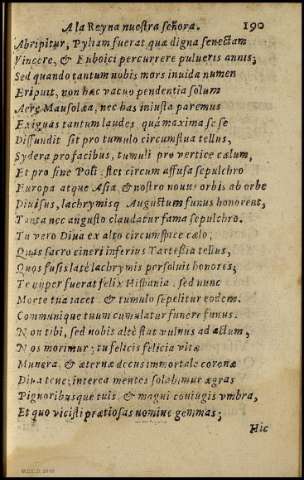 A la Reyna nuestra señora. 190
Abripitur, Pyliam fuerat quæ digna senectam
Vincere, & Euboici percurrere pulueris annis;
Sed quando tantum nobis mors inuida numen
Eripuit, non hæc vacuo pendentia solum
Aere Mausolæa, nec has iniusta paremus
Exiguas tantum laudes quàmaxima se se
Diffundit sit pro tumulo circumflua tellus,
Sydera pro facibus, tumuli pro vertice cælum,
Et pro sine Poli: stet circum affusa sepulchro
Europa atque Asia, & nostro nouus orbis ab orbe
Diuisus, lachrymisq Augustum funus honorent,
Tanta nec angusto claudatur fama sepulcro.
Tu vero Diua ex alto circumspice cælo,
Quas sacro cineri inferius Tartessia tellus,
Quos fusis latè lachrymis persoluit honores;
Te nuper fuerat felix Hispania, sed nunc
Morte tua iacet & tumulo sepelitur eodem.
Communique tuum cumulatur funere funus.
Non tibi, sed nobis altè stat vulnus adactum,
Nos morimur; tu felicis felicia vitæ
Munera, & æternæ decus immortale coronæ
Diua tene; interea mentes solabimur ægras
Pignoribusque tuis & magni coniugis vmbra,
Et quo vicisti prætiosas nomine gemmas;
Hic